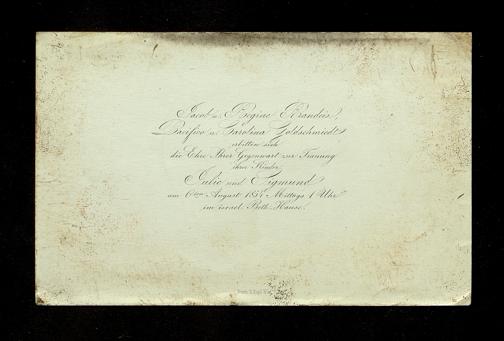 Jacob u. Regine Brandeis,
Pacifico u. Carolina Goldschmiedt
erbitten sich
die Ehre Ihrer Gegenwart zur Trauung
ihrer Kinder,
Julie und Sigmund
am 6ten August 1854 Mittags 1 Uhr
im israel. Beth-Hause.